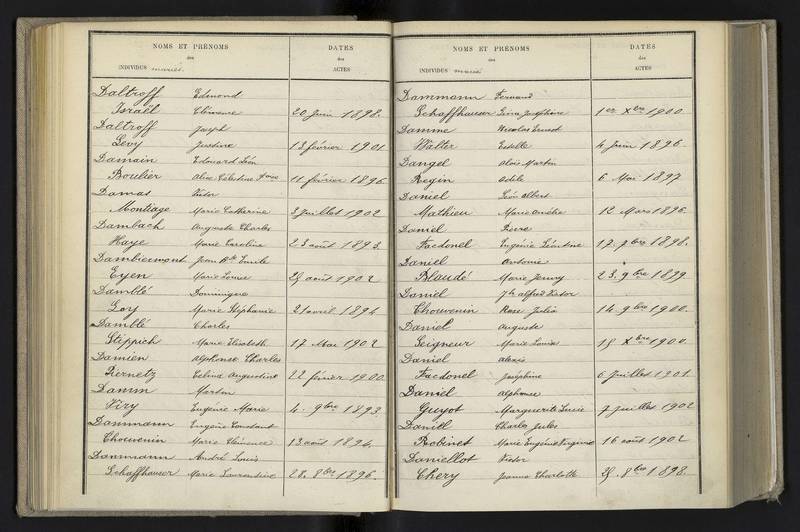 NOMS ET PRÉNOMS DATES
des des
INDIVIDUS mariés. ACTES
Daltroff Edmond
Israël Clémence 20 Juin 1898.
Daltroff Joseph
Levy Justine 13 février 1901.
Damain Edouard Léon
Boulier Alice Célestine 11 février 1896.
Damas Victor
Montiage Marie Catherine 3 Juillet 1902.
Dambach Auguste Charles
Haye Marie Caroline 23 août 1893.
Dambiermont Jean Bte Emile
Eyen Marie Louise août 1902.
Damblé Dominique
Goy Marie Stéphanie 21 avril 1894.
Damblé Charles
Stippich Marie Elisabeth 17 Mai 1902.
Damien Alphonse Charles
Piernetz Célina Augustine 22 février 1900.
Damm Martin
Viry Eugénie Marie 4. 9bre 1893.
Dammann Eugène Constant
Chouvenin Marie Clémence 13 août 1894.
Dammann André Louis
Schaffhauser Marie Laurentine 28. 8bre 1896.
NOMS ET PRÉNOMS DATES
des des
INDIVIDUS mariés ACTES
Dammann Fernand
Schaffhauser Joséphine 1er Xbre 1900
Damme Nicolas Ernest
Walter Estelle 4 Juin 1896.
Dangel Aloïs Martin
Regin Odile 6 Mai 1897
Daniel Léon Albert
Mathieu Marie Andréa 12 Mars 1896.
Daniel Pierre
Facdonel Eugénie Léontine 17. 7bre 1898.
Daniel Antoine
Blaudé Marie Jenny 23. 9bre 1899
Daniel Jh Alfred Victor
Chouvenin Rose Julia 14. 9bre 1900.
Daniel Auguste
Seigneur Marie Louise Xbre 1900.
Daniel Alexis
Facdonel Joséphine 6 Juillet 1901.
Daniel Alphonse
Guyot Marguerite Lucie 7 Juillet 1902
Daniel Charles Jules
Robinet Marie Eugénie Virginie 16 août 1902
Daniellot Victor
Chery Jeanne Charlotte 8bre 1898.